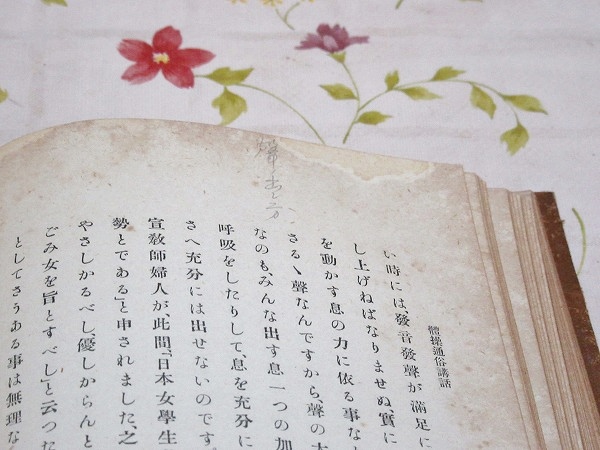 體操通俗講話
い時には、發音發聲が滿足に
し上げねばなりませぬ、實に
を動かす息の力に依る事な
さるゝ聲なんですから、聲の大
なのも、みんな出す息一つの加
呼吸をしたりして、息を充分に
さへ充分には出せないのです。
宣敎師婦人が、此間、『日本女學生
勢とである』と申されました、之
やさしかるべし、優しからんと
ごみ女を旨とすべし』と云つた
としてさうある事は無理な